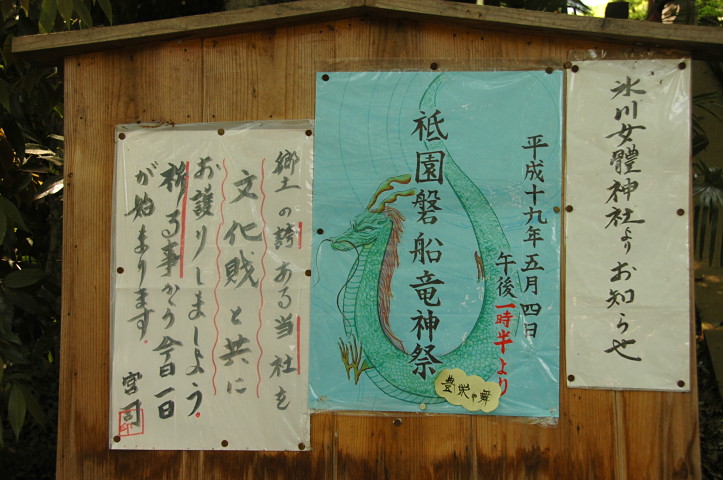 氷川女體神社より お知らせ
平成十九年五月四日
午後一時半より
祇園磐船竜神祭
豊栄の舞
郷土の誇ある当社を
文化財と共に
お護りしましょう。
祈る事から今日一日
が始まります。
宮司